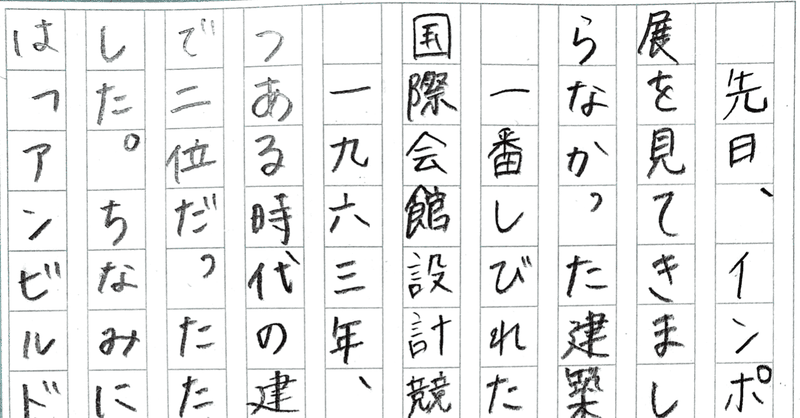 先日、インポ
展を見てきまし
らなかった建築
一番しびれた
国際会館設計競
一九六三年、
つある時代の建
で二位だったた
した。ちなみに
はファンビルド